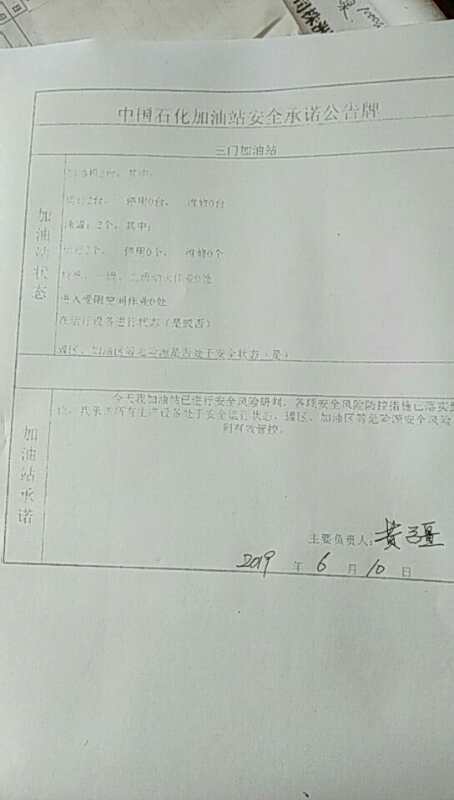 中国石化加油站安全承诺公告牌
三门加油站
加油站状态
运行2台, 停用0台, 维修0台
油罐:2个,其中:
停用0个, 维修0个
特级、一级、二级动火作业0处
进入受限空间作业0处
在运行设备进行状态(是或否)
罐区、加油区等危险源是否处于安全状态(是)
加油站承诺
今天我加油站已进行安全风险研判,各项安全风险防控措施已落实到
位,我承诺所有生产设备处于安全运行状态,罐区、加油区等危险源安全风险
得到有效管控。
主要负责人:黄
2019 年 6 月 10 日